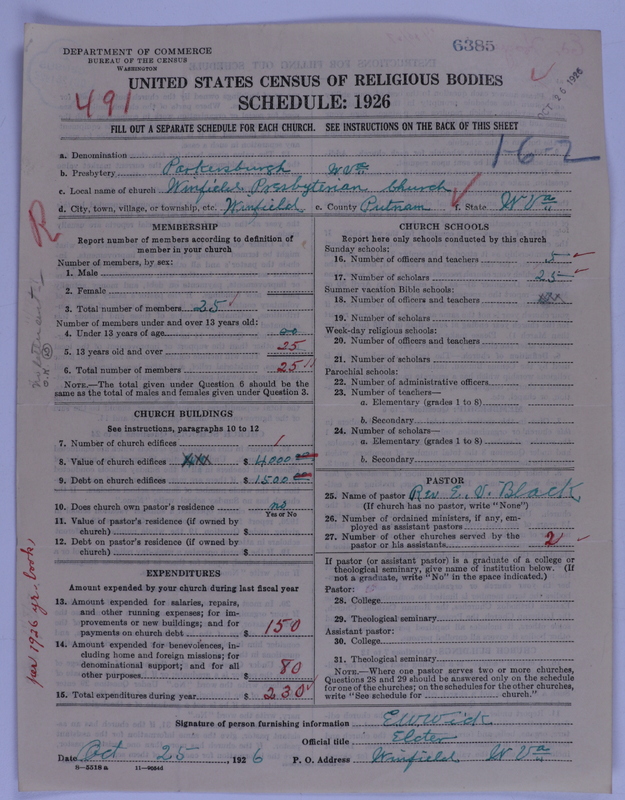 6385
DEPARTMENT OF COMMERCE
BUREAU OF THE CENSUS
WASHINGTON
OCT 26 1926
UNITED STATES CENSUS OF RELIGIOUS BODIES
SCHEDULE: 1926
491
FILL OUT A SEPARATE SCHEDULE FOR EACH CHURCH. SEE INSTRUCTIONS ON THE BACK OF THIS SHEET
1-6-2
a. Denomination
b. Presbytery Parkersburgh W Va
c. Local name of church Winfield Presbyterian Church
d. City, town, village, or township, etc. Winfield e. County Putnam f. State W Va
R
MEMBERSHIP
Report number of members according to definition of
member in your church
Number of members, by sex:
1. Male
2. Female
3. Total number of members 25
Number of members under and over 13 years old:
4. Under 13 years of age
5. 13 years old and over 25
6. Total number of members 25
NOTE.—The total given under Question 6 should be the
same as the total of males and females given under Question 3.
CHURCH BUILDINGS
See instructions, paragraphs 10 to 12
7. Number of church edifices 1
8. Value of church edifices XXX $ 4000
9. Debt on church edifices $ 1500
10. Does church own pastor's residence no
Yes or No
11. Value of pastor's residence (if owned by
church) $
12. Debt on pastor's residence (if owned by
church) $
per 1926 yr. book,
EXPENDITURES
Amount expended by your church during last fiscal year
13. Amount expended for salaries, repairs,
and other running expenses; for im-
provements or new buildings; and for
payments on church debt $ 150
14. Amount expended for benevolences, in-
cluding home and foreign missions; for
denominational support; and for all
other purposes $ 80
15. Total expenditures during year $ 230
CHURCH SCHOOLS
Report here only schools conducted by this church
Sunday schools:
16. Number of officers and teachers 5
17. Number of scholars 25
Summer vacation Bible schools:
18. Number of officers and teachers XXX
19. Number of scholars
Week-day religious schools:
20. Number of officers and teachers
21. Number of scholars
Parochial schools:
22. Number of administrative officers
23. Number of teachers—
a. Elementary (grades 1 to 8)
b. Secondary
24. Number of scholars—
a. Elementary (grades 1 to 8)
b. Secondary
PASTOR
25. Name of pastor Rev. E. V. Black
(If church has no pastor, write "None")
26. Number of ordained ministers, if any, em-
ployed as assistant pastors
27. Number of other churches served by the
pastor or his assistants 2
If pastor (or assistant pastor) is a graduate of a college or
theological seminary, give name of institution below. (If
not a graduate, write "No" in the space indicated.)
Pastor:
28. College
29. Theological seminary
Assistant pastor:
30. College
31. Theological seminary
NOTE.—Where one pastor serves two or more churches,
Questions 28 and 29 should be answered only on the schedule
for one of the churches; on the schedules for the other churches,
write "See schedule for church."
Signature of person furnishing information E W Wick
Official title Elder
Date Oct 25, 1926 P. O. Address Winfield W Va
8—5518 a 11—9664d